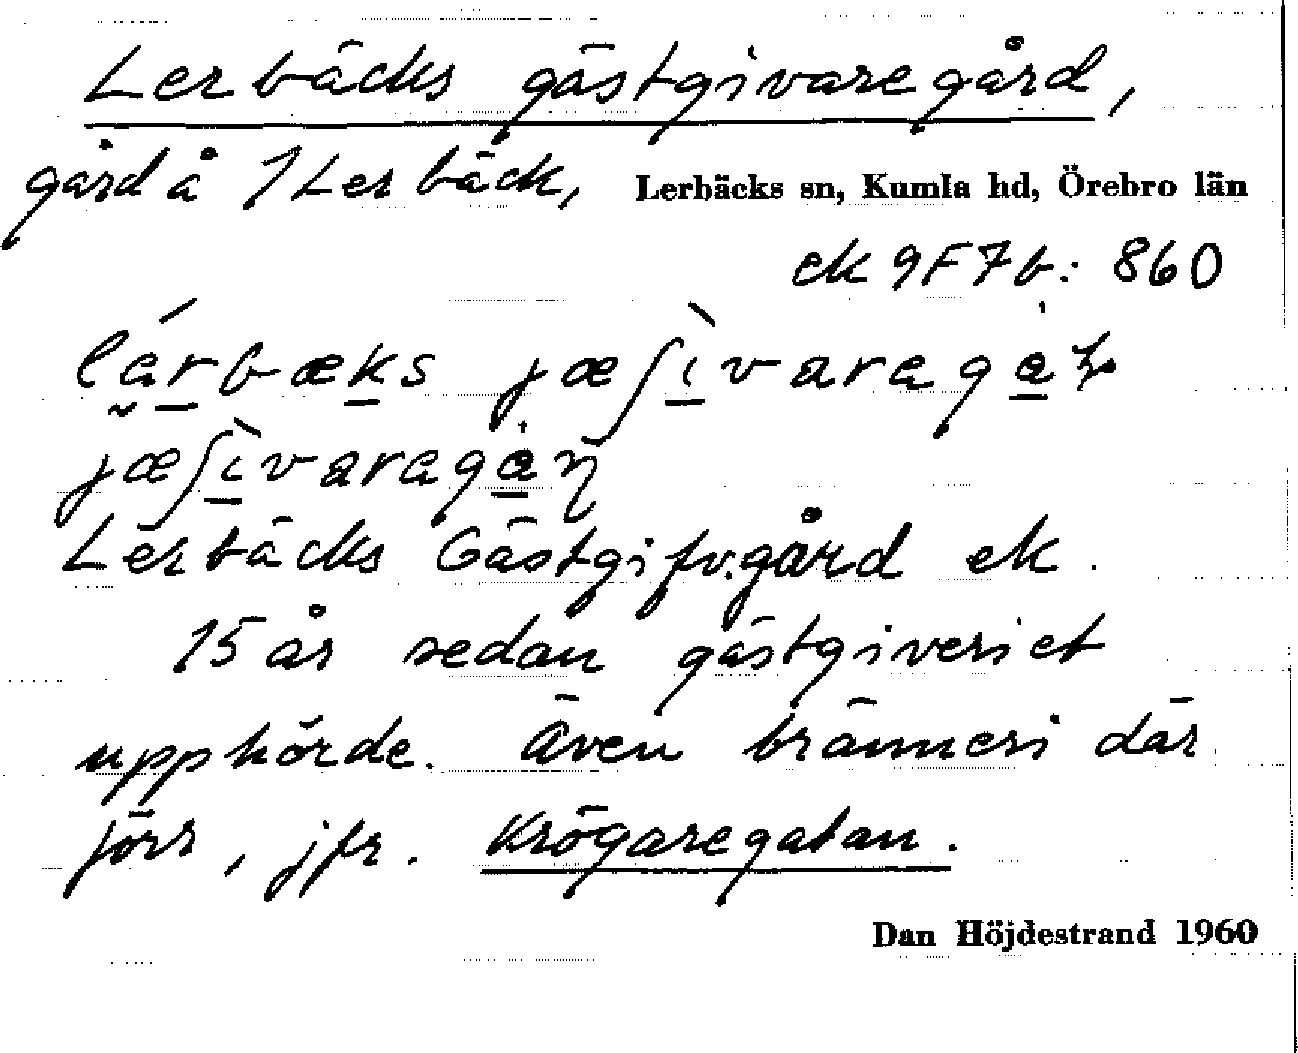 Lerbäcks gästgivaregård,
gård å 1 Lerbäck, Lerbäcks sn, Kumla hd, Örebro län
ek 9F7b: 860
Lerbäcks Gästgifv.gård ek.
15 år sedan gästgiveriet
upphörde. Även bränneri där
förr, jfr. Krögaregatan.
Dan Höjdestrand 1960